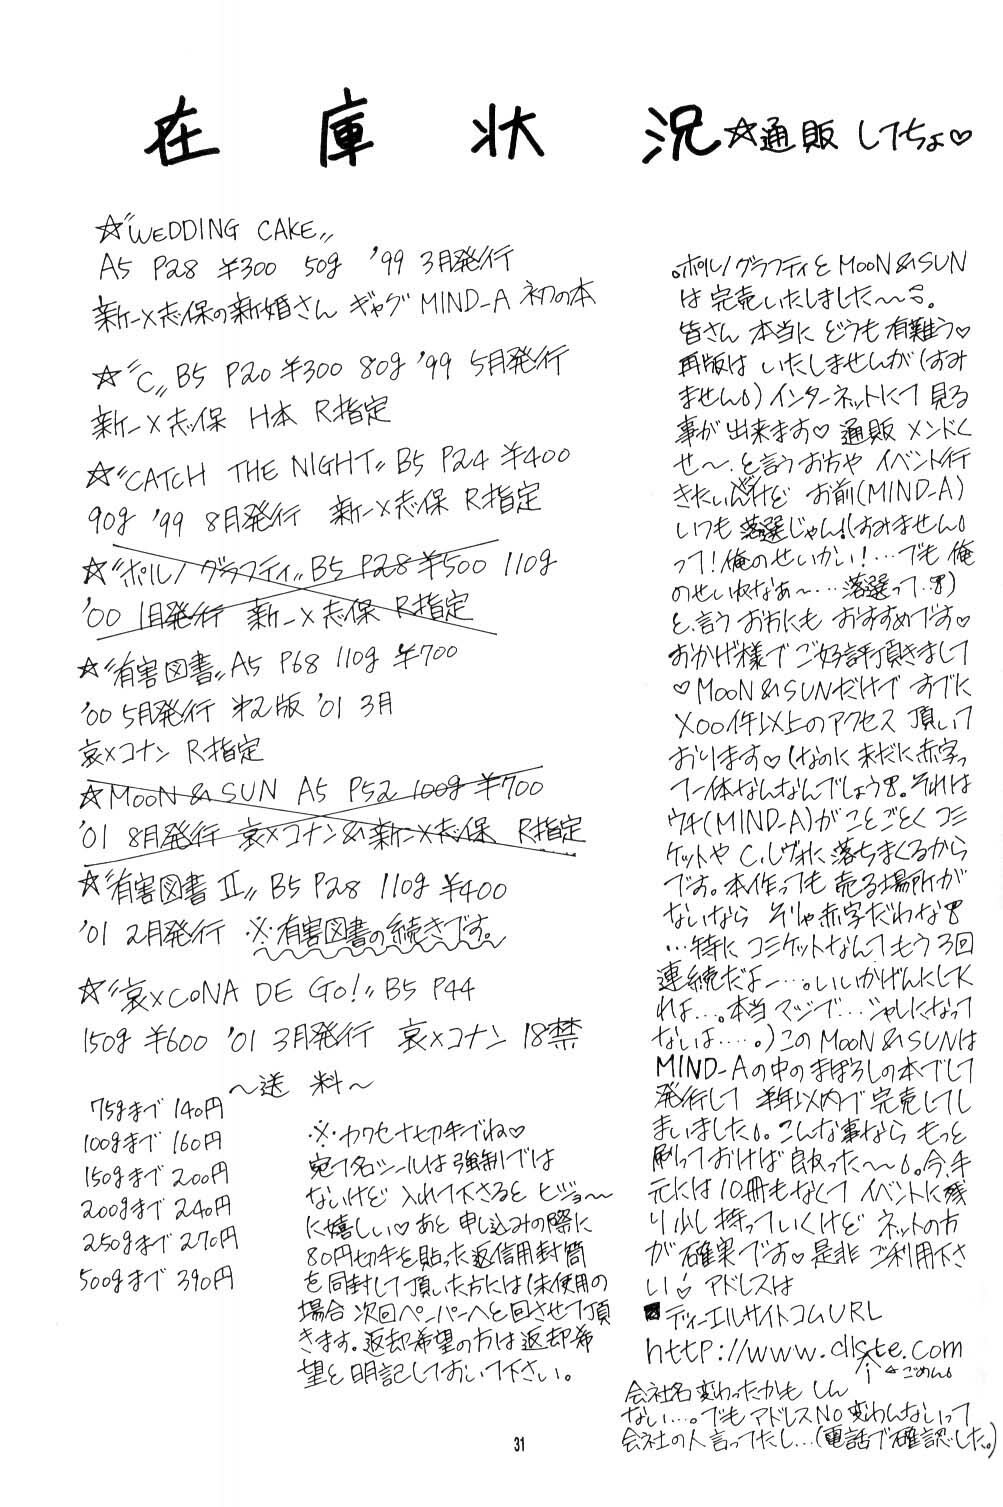 在庫状況☆通販 してちょ♡
☆"WEDDING CAKE"
A5 P28 ¥300 50g '99 3月発行
新一×志保の新婚さん ギャグ MIND-A 初の本
☆"C" B5 P20 ¥300 80g '99 5月発行
新一×志保 H本 R指定
☆"CATCH THE NIGHT" B5 P24 ¥400
90g '99 8月発行 新一×志保 R指定
☆"ポルノグラフティ" B5 P28 ¥500 110g
'00 1月発行 新一×志保 R指定
☆"有害図書" A5 P68 110g ¥700
'00 5月発行 第2版 '01 3月
哀×コナン R指定
☆MOON & SUN A5 P52 100g ¥700
'01 8月発行 哀×コナン&新一×志保 R指定
☆"有害図書 II" B5 P28 110g ¥400
'01 2月発行 ※有害図書の続きです。
☆"哀×CONA DE GO!" B5 P44
150g ¥600 '01 3月発行 哀×コナン 18禁
〜送料〜
75gまで 140円
100gまで 160円
150gまで 200円
200gまで 240円
250gまで 270円
500gまで 390円
※カワセ+切手でね♡
宛て名シールは強制では
ないけど 入れて下さると ヒジョ〜
に嬉しい♡あと 申し込みの際に
80円切手を貼った返信用封筒
を同封して頂いた方には(未使用の
場合 次回ペーパーへと回させて頂
きます。返却希望の方は返却希
望と明記しておいて下さい。
。ポルノグラフティと MOON & SUN
は 完売いたしました〜〜。
皆さん 本当に どうも 有難う♡
再版は いたしませんが(すみ
ません)インターネットにて 見る
事が 出来ます♡ 通販 メンドく
せ〜、と言うお方や イベント行
きたいんだけど お前(MIND-A)
いつも 落選じゃん!(すみません
って!俺のせいかい!…でも 俺
のせいねなぁ〜…落選って…)
と、言う おかたにも おすすめです♡
おかげ様で ご好評頂きまして
♡MOON & SUNだけで すでに
×00件以上のアクセス 頂いて
おります♡(なのに 未だに赤字っ
て一体なんなんでしょう。それは
ウチ(MIND-A)が ことごとく コミ
ケットや C.レヴォに 落ちまくるから
です。本作っても 売る場所が
ないなら そりゃ赤字だわな
…特に コミケットなんて もう 3回
連続だよー…。いいかげんにしてく
れよ…。本当 マジで…シャレになって
ないは……。)この MOON & SUNは
MIND-Aの中の まぼろしの本でして
発行して 半年以内で 完売してし
まいました。こんな事なら もっと
刷っておけば 良かった〜〜。今、手
元には 10冊もなくて イベントに残
り少し 持っていくけど ネットの方
が 確実です♡ 是非 ご利用下さ
い♡ アドレスは
■ディーエルサイトコムURL
http://www.dlste.com
i ←ごめん
会社名 変わったかも しん
ない…。でも アドレスNO 変わんないって
会社の人 言ってたし…(電話で確認した。)
31